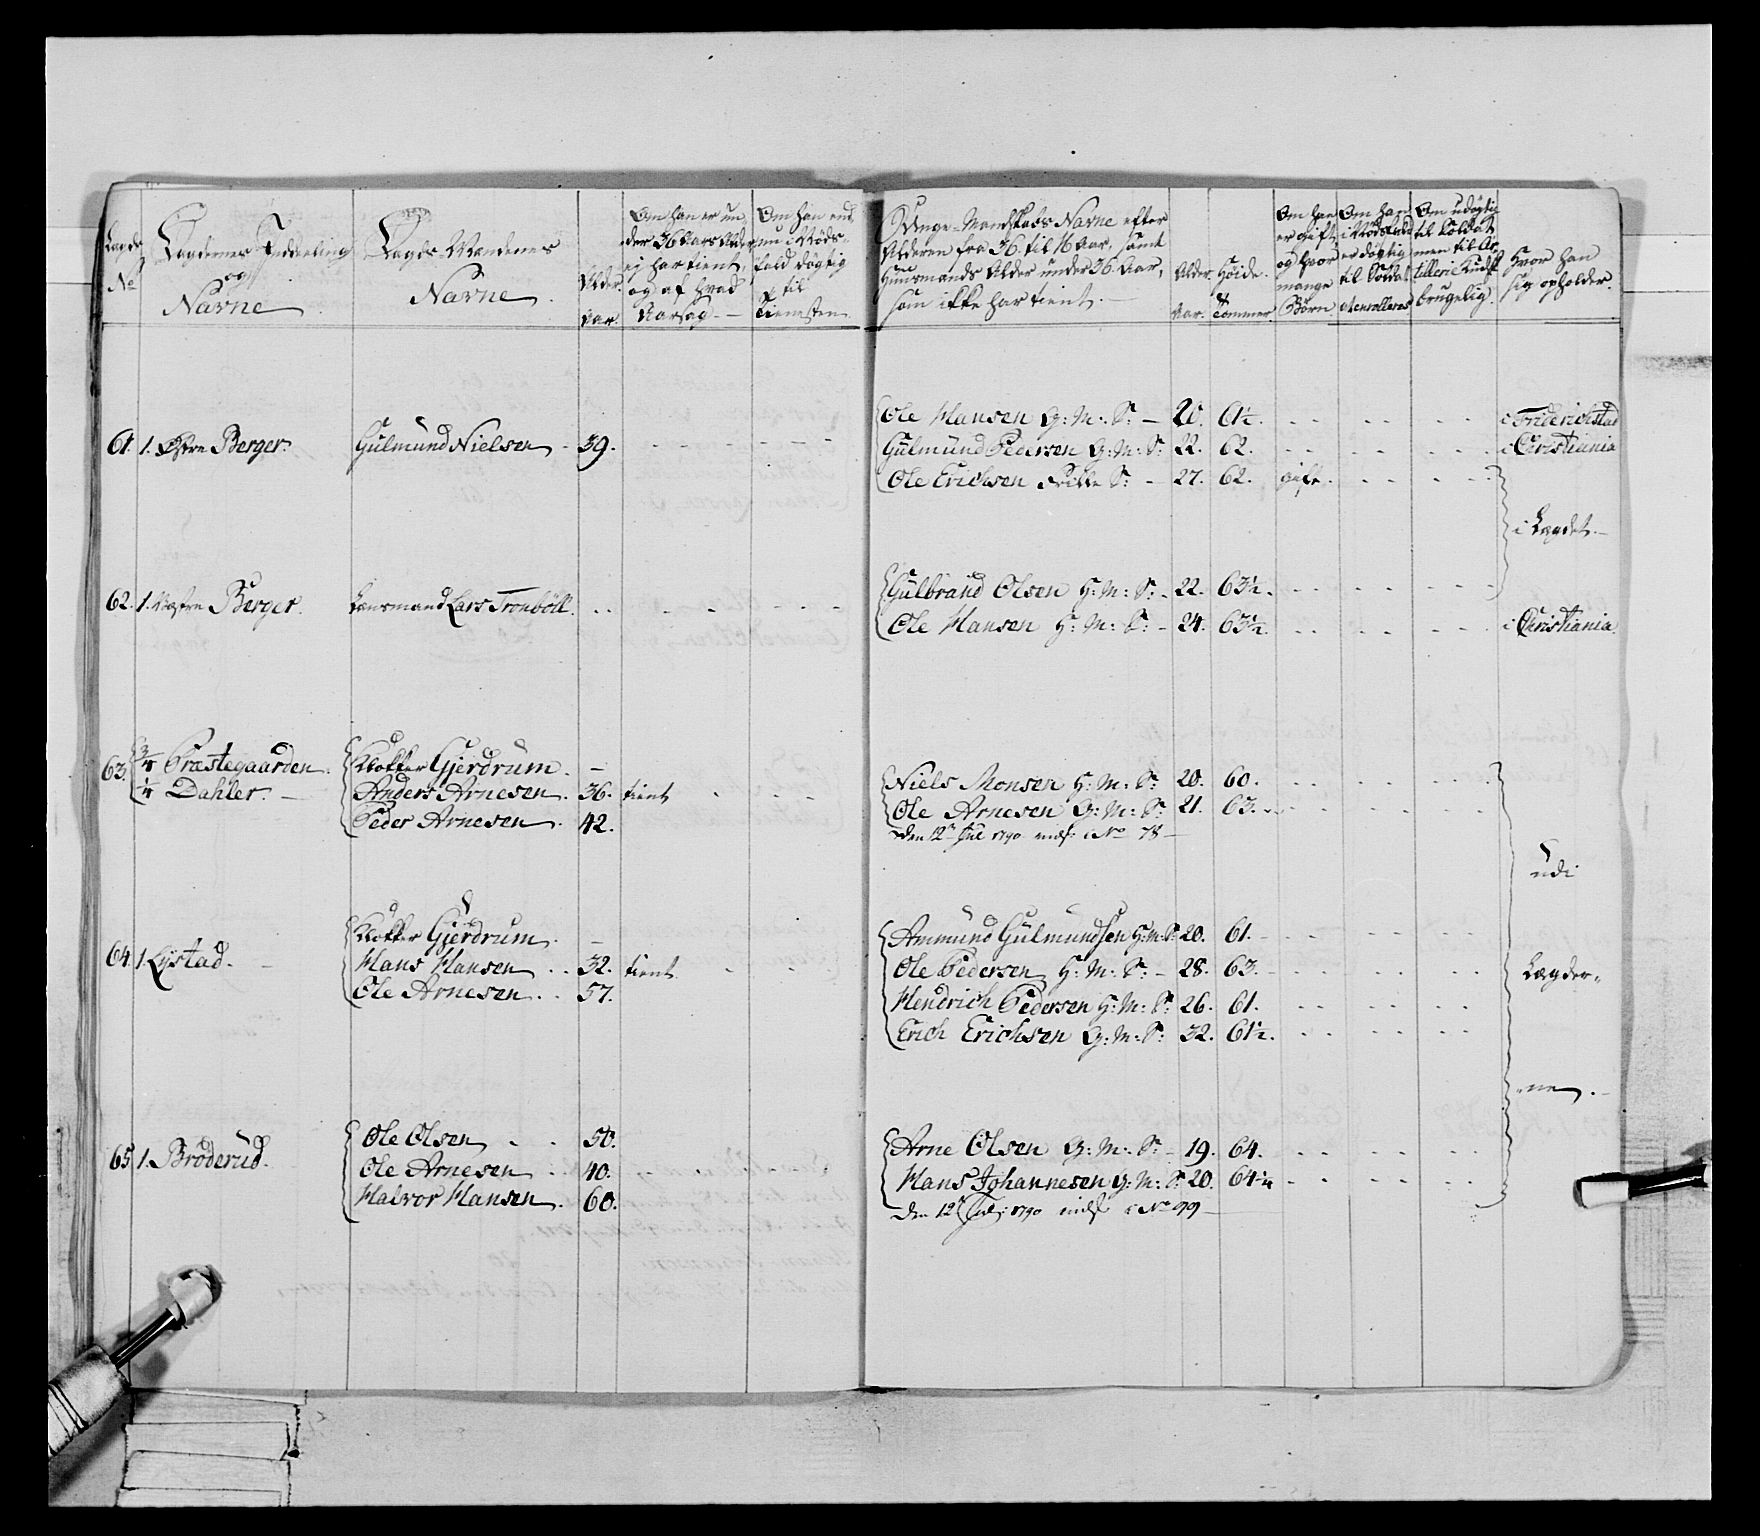 Lægds No
Lægdenes Inddeeling og Navne
Lægds Mændenes Navne.
Alder Aar.
Om han er under 36 Aars Alder, ej har tient, og af hvad Aarsag. —
Om han endnu i Nøds-fald døgtig til Tienesten
Unge Mandskabs Navne efter Alderen fra 36 til 16 Aar, samt Huusmænds Alder under 36 Aar, som ikke har tient. —
Alder. Aar.
Høide. Tommer.
Om han er gift og hvor mange Børn.
Om han i Nødsfald er døgtig til Soldat
Om udøgtig til Soldat men til Artillerie Kudsk brugelig.
Hvor han sig opholder.
61. 1. Østre Berger. Gulmund Nielsen - 39.
Ole Hansen G: M: S: — 20. 61½. i Friderichstad
Gulmund Pedersen G: M: S: 22. 62. i Christiania
Ole Erichsen S: - 27. 62. gift.
i Lægdet. —
62. 1. Vestre Berger. Lensmand Lars Tronböll.
Gulbrand Olsen H: M: S: - 22. 63½.
Ole Hansen H: M: S: - 24. 63½. i Christiania
63. Præstegaarden. Klokker Gjerdrum. —
Dahler. — Anders Arnesen. 36. tient
Peder Arnesen. 42.
Niels Monsen H: M: S: 20. 60.
Ole Arnesen G: M: S: 21. 63.
den 12 Jul 1790 indf: i No 78 —
udi
64. 1. Lystad. — Klokker Gjerdrum. —
Hans Hansen. 32. tient
Ole Arnesen. 57.
Ammund Gulmundsen H: M: S: 20. 61.
Ole Pedersen H: M: S: — 28. 63.
Hendrich Pedersen H: M: S: 26. 61.
Erich Erichsen G: M: S: 32. 61½.
Lægder-
-ne.
65. 1. Bröderud. Ole Olsen 50.
Ole Arnesen 40.
Halvor Hansen. 60.
Arne Olsen G: M: S: - 19. 64.
Hans Johannesen G: M: S: 20. 64¼
den 12 Juli 1790 indf i No 99 —